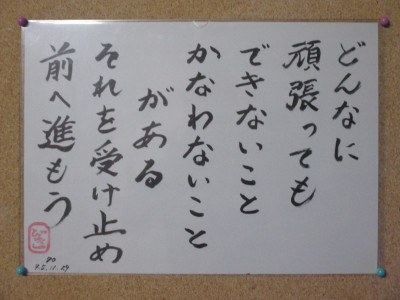 どんなに
頑張っても
できないこと
かなわないこと
がある
それを受け止め
前へ進もう